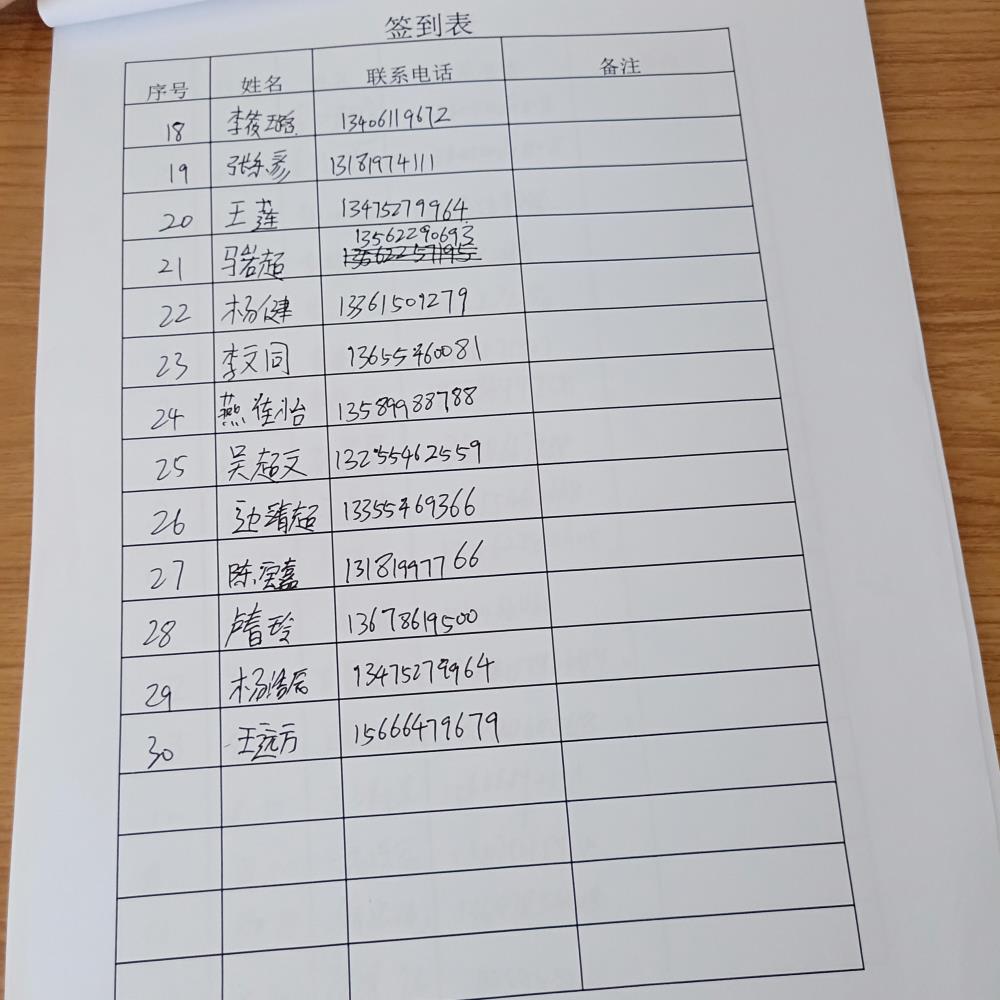 签到表
序号 姓名 联系电话 备注
18 李筱璐 13406119672
19 张东彦 13181974111
20 王莲 13475279964
13562290693
21 马岩超 13562257195
22 杨健 13361509279
23 李文同 13655460081
24 燕佳怡 13589988788
25 吴超文 13255462559
26 边靖超 13355469366
27 陈 嘉 13181997766
28 玲 13678619500
29 杨 13475279964
30 王远方 15666479679